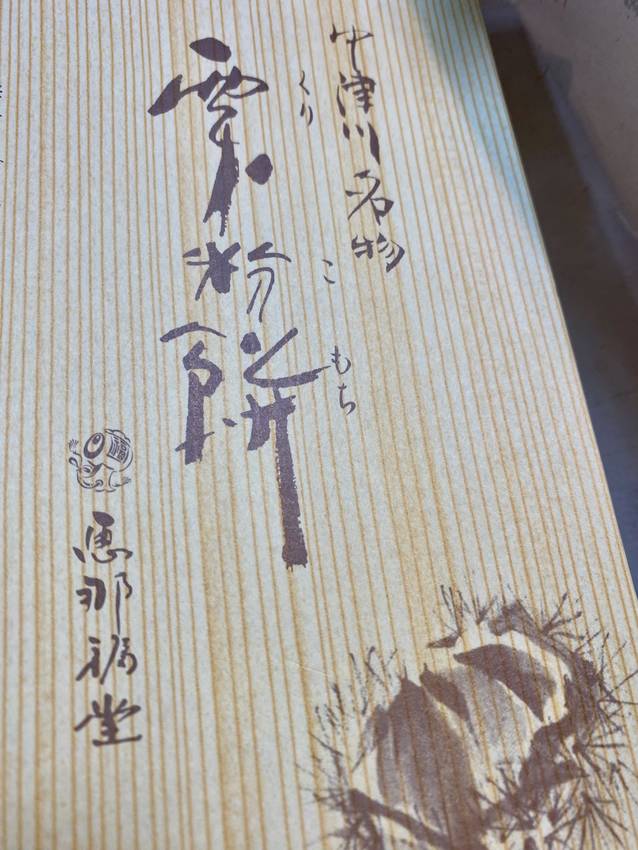 中津川名物
くりこもち
栗粉餅
恵那福堂